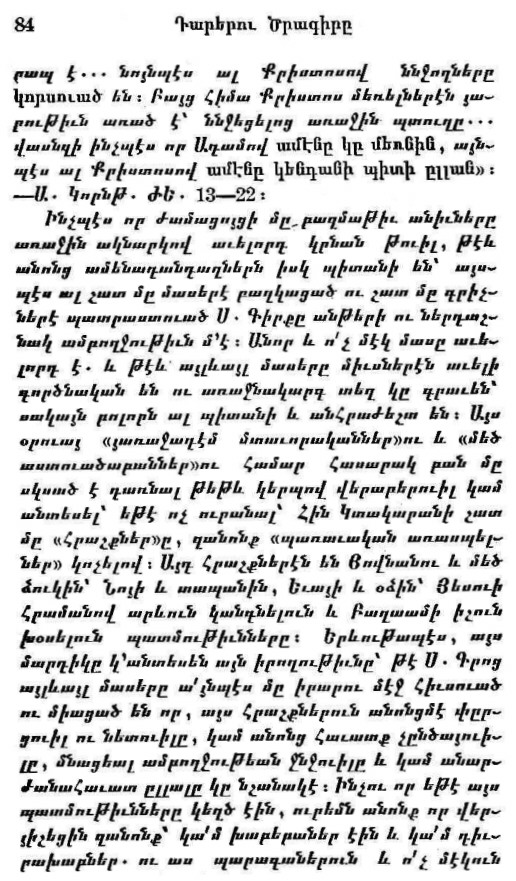 84
Դարերու Ծրագիրը
րապ է... նոյնպէս ալ Քրիստոսով ննջողները
կորսուած են։ Բայց հիմա Քրիստոս մեռելներէն յա-
րութիւն առած է՝ ննջեցելոց առաջին պտուղը...
վասնզի ինչպէս որ Ադամով ամէնը կը մեռնին, այն-
պէս ալ Քրիստոսով ամէնը կենդանի պիտի ըլլան»։
—Ա. Կորնթ. ԺԵ. 13—22։
Ինչպէս որ ժամացոյցի մը բազմաթիւ անիւները
առաջին ակնարկով աւելորդ կրնան թուիլ, թէև
անոնց ամենադանդաղներն իսկ պիտանի են՝ այս-
պէս ալ շատ մը մասերէ բաղկացած ու շատ մը գրիչ-
ներէ պատրաստուած Ս. Գիրքը անթերի ու ներդաշ-
նակ ամբողջութիւն մ՚է։ Անոր և ո՛չ մէկ մասը աւե-
լորդ է. և թէև այլևայլ մասերը միւսներէն աւելի
գործնական են ու առաջնակարգ տեղ կը գրաւեն՝
սակայն բոլորն ալ պիտանի և անհրաժեշտ են։ Այս
օրուայ «յառաջադէմ մտաւորականներ»ու և «մեծ
աստուածաբաններ»ու համար հասարակ բան մը
սկսած է դառնալ թեթև կերպով վերաբերուիլ կամ
անտեսել՝ եթէ ոչ ուրանալ՝ Հին Կտակարանի շատ
մը «հրաշքներ»ը, զանոնք «պառաւական առասպել-
ներ» կոչելով։ Այդ հրաշքներէն են Յովնանու և մեծ
ձուկին՝ Նոյի և տապանին, Եւայի և օձին՝ Յեսուի
հրամանով արևուն կանգնելուն և Բաղաամի իշուն
խօսելուն պատմութիւնները։ Երևութապէս, այս
մարդիկը կ՚անտեսեն այն իրողութիւնը՝ թէ Ս. Գրոց
այլևայլ մասերը ա՛յնպէս մը իրարու մէջ հիւսուած
ու միացած են որ, այս հրաշքներուն անոնցմէ փրց-
ցուիլ ու նետուիլը, կամ անոնց հաւատք չընծայուի-
լը, մնացեալ ամբողջութեան ջնջուիլը և կամ անար-
ժանահաւատ ըլլալը կը նշանակէ։ Ինչու որ եթէ այս
պատմութիւնները կեղծ էին, ուրեմն անոնք որ վեր-
յիշեցին զանոնք՝ կա՛մ խաբեբաներ էին և կա՛մ դիւ-
րախաբներ. ու աս պարագաներուն և ո՛չ մէկուն